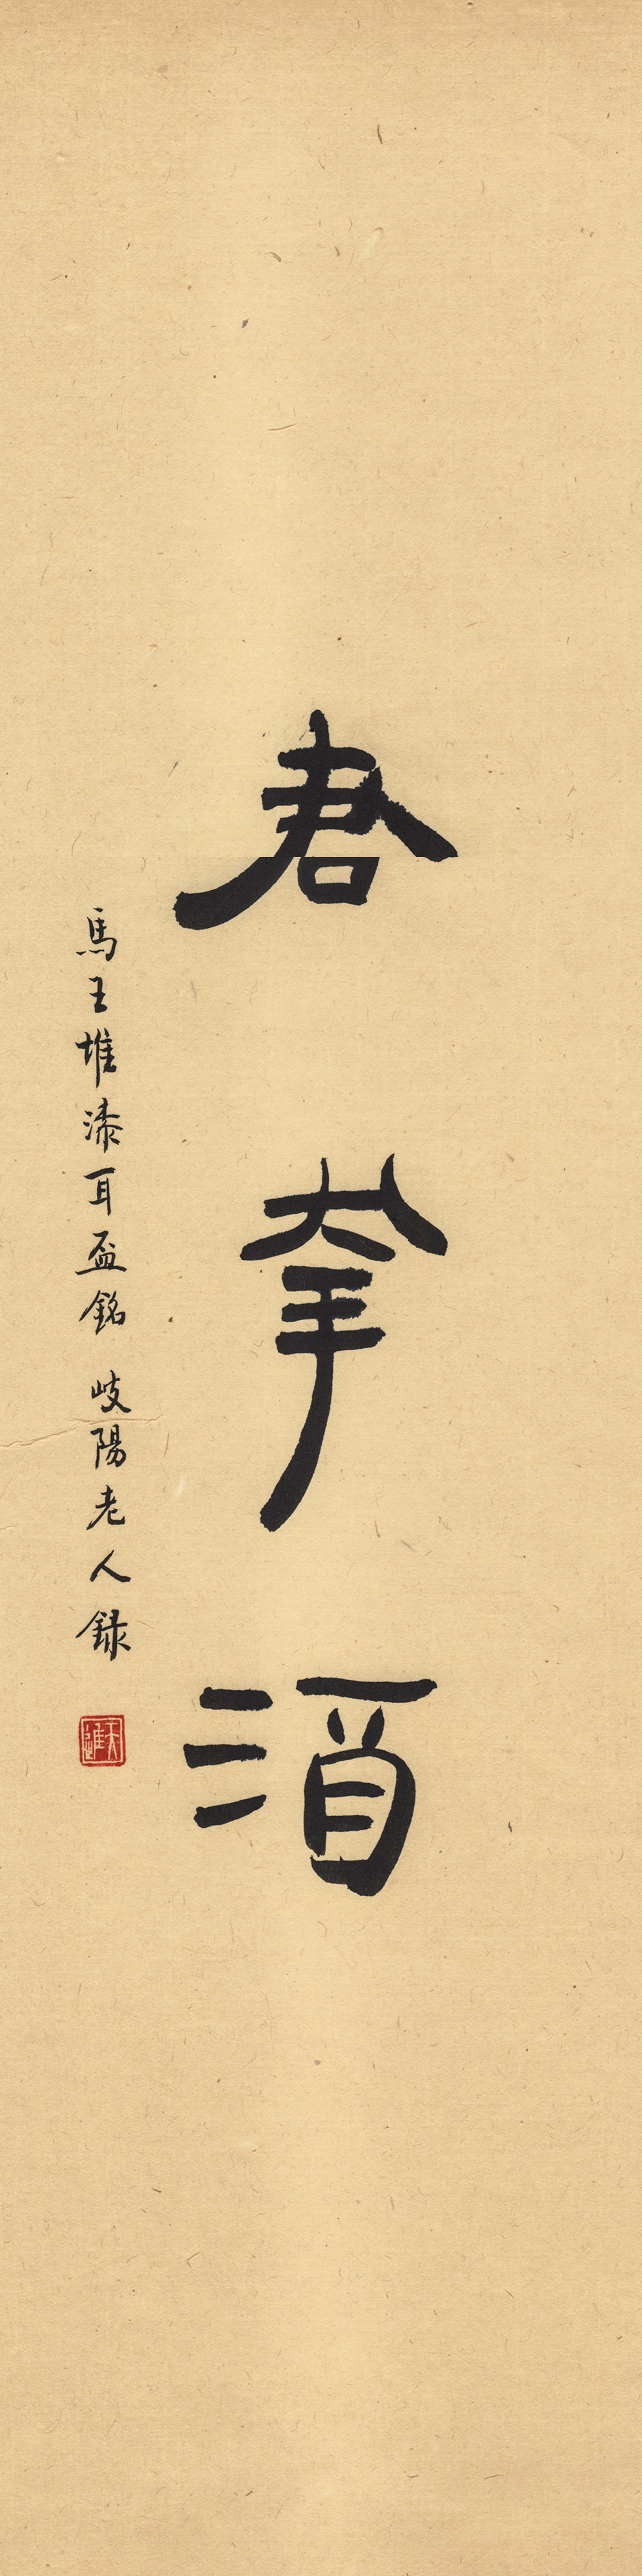 君幸酒
馬王堆漆耳盃銘 岐陽老人録